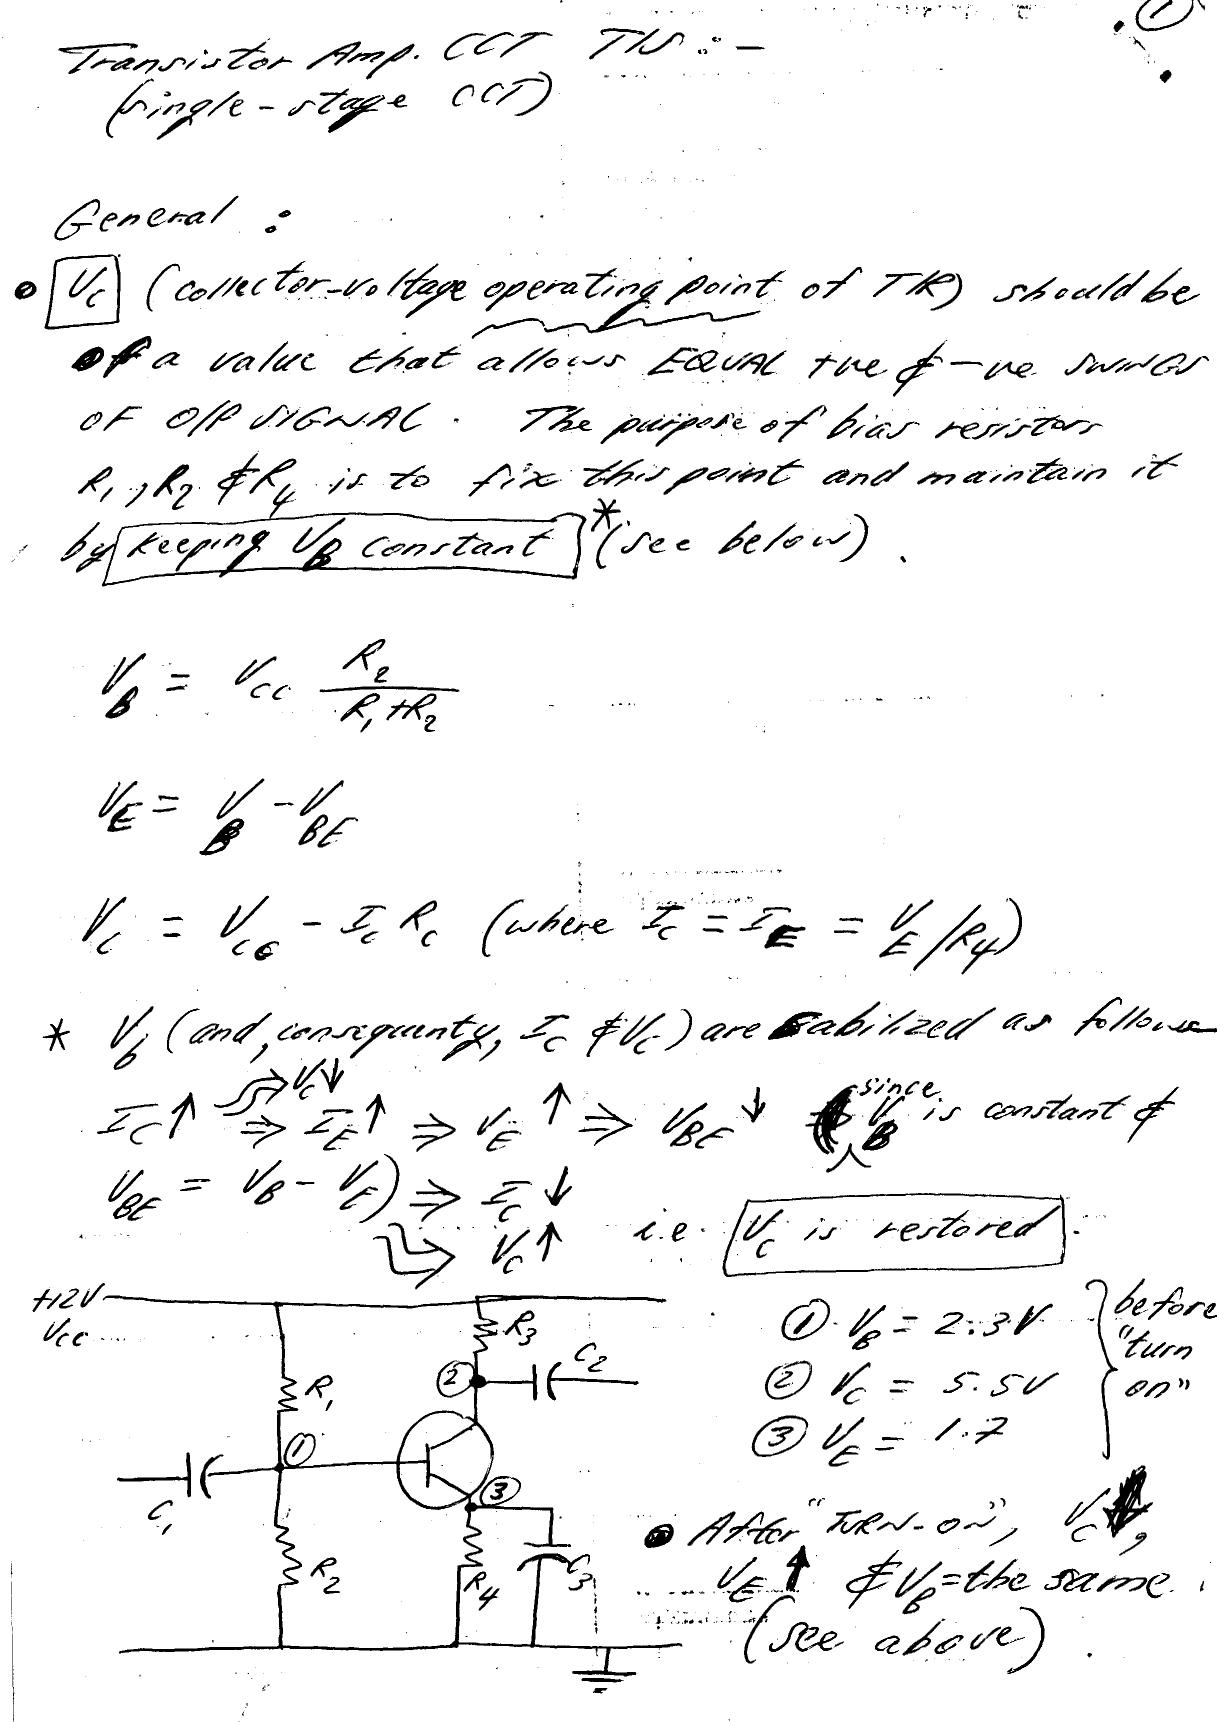 ①
Transistor Amp. CCT T/S :-
(single-stage CCT)
General :
• Vc (collector-voltage operating point of TR) should be
of a value that allows EQUAL +ve & -ve SWINGS
OF O/P SIGNAL. The purpose of bias resistors
R1, R2 & R4 is to fix this point and maintain it
by keeping VB constant * (see below).
VB = Vcc R2 / R1+R2
VE = VB - VBE
Vc = Vcc - Ic Rc (where Ic = IE = VE/R4)
* Vb (and, consequenty, Ic & Vc) are sabilized as follows
⇒ Vc↓
Ic↑ ⇒ IE↑ ⇒ VE↑ ⇒ VBE↓ (since VB is constant &
VBE = VB - VE) ⇒ Ic↓
⇒ Vc↑ i.e. Vc is restored.
+12V
Vcc
R3
C2
②
R1
①
③
C1
R2
R4
C3
① VB = 2.3V
② Vc = 5.5V
③ VE = 1.7
before
"turn
on"
• After "TURN-ON", Vc↓,
VE↑ & VB = the same.
(see above).